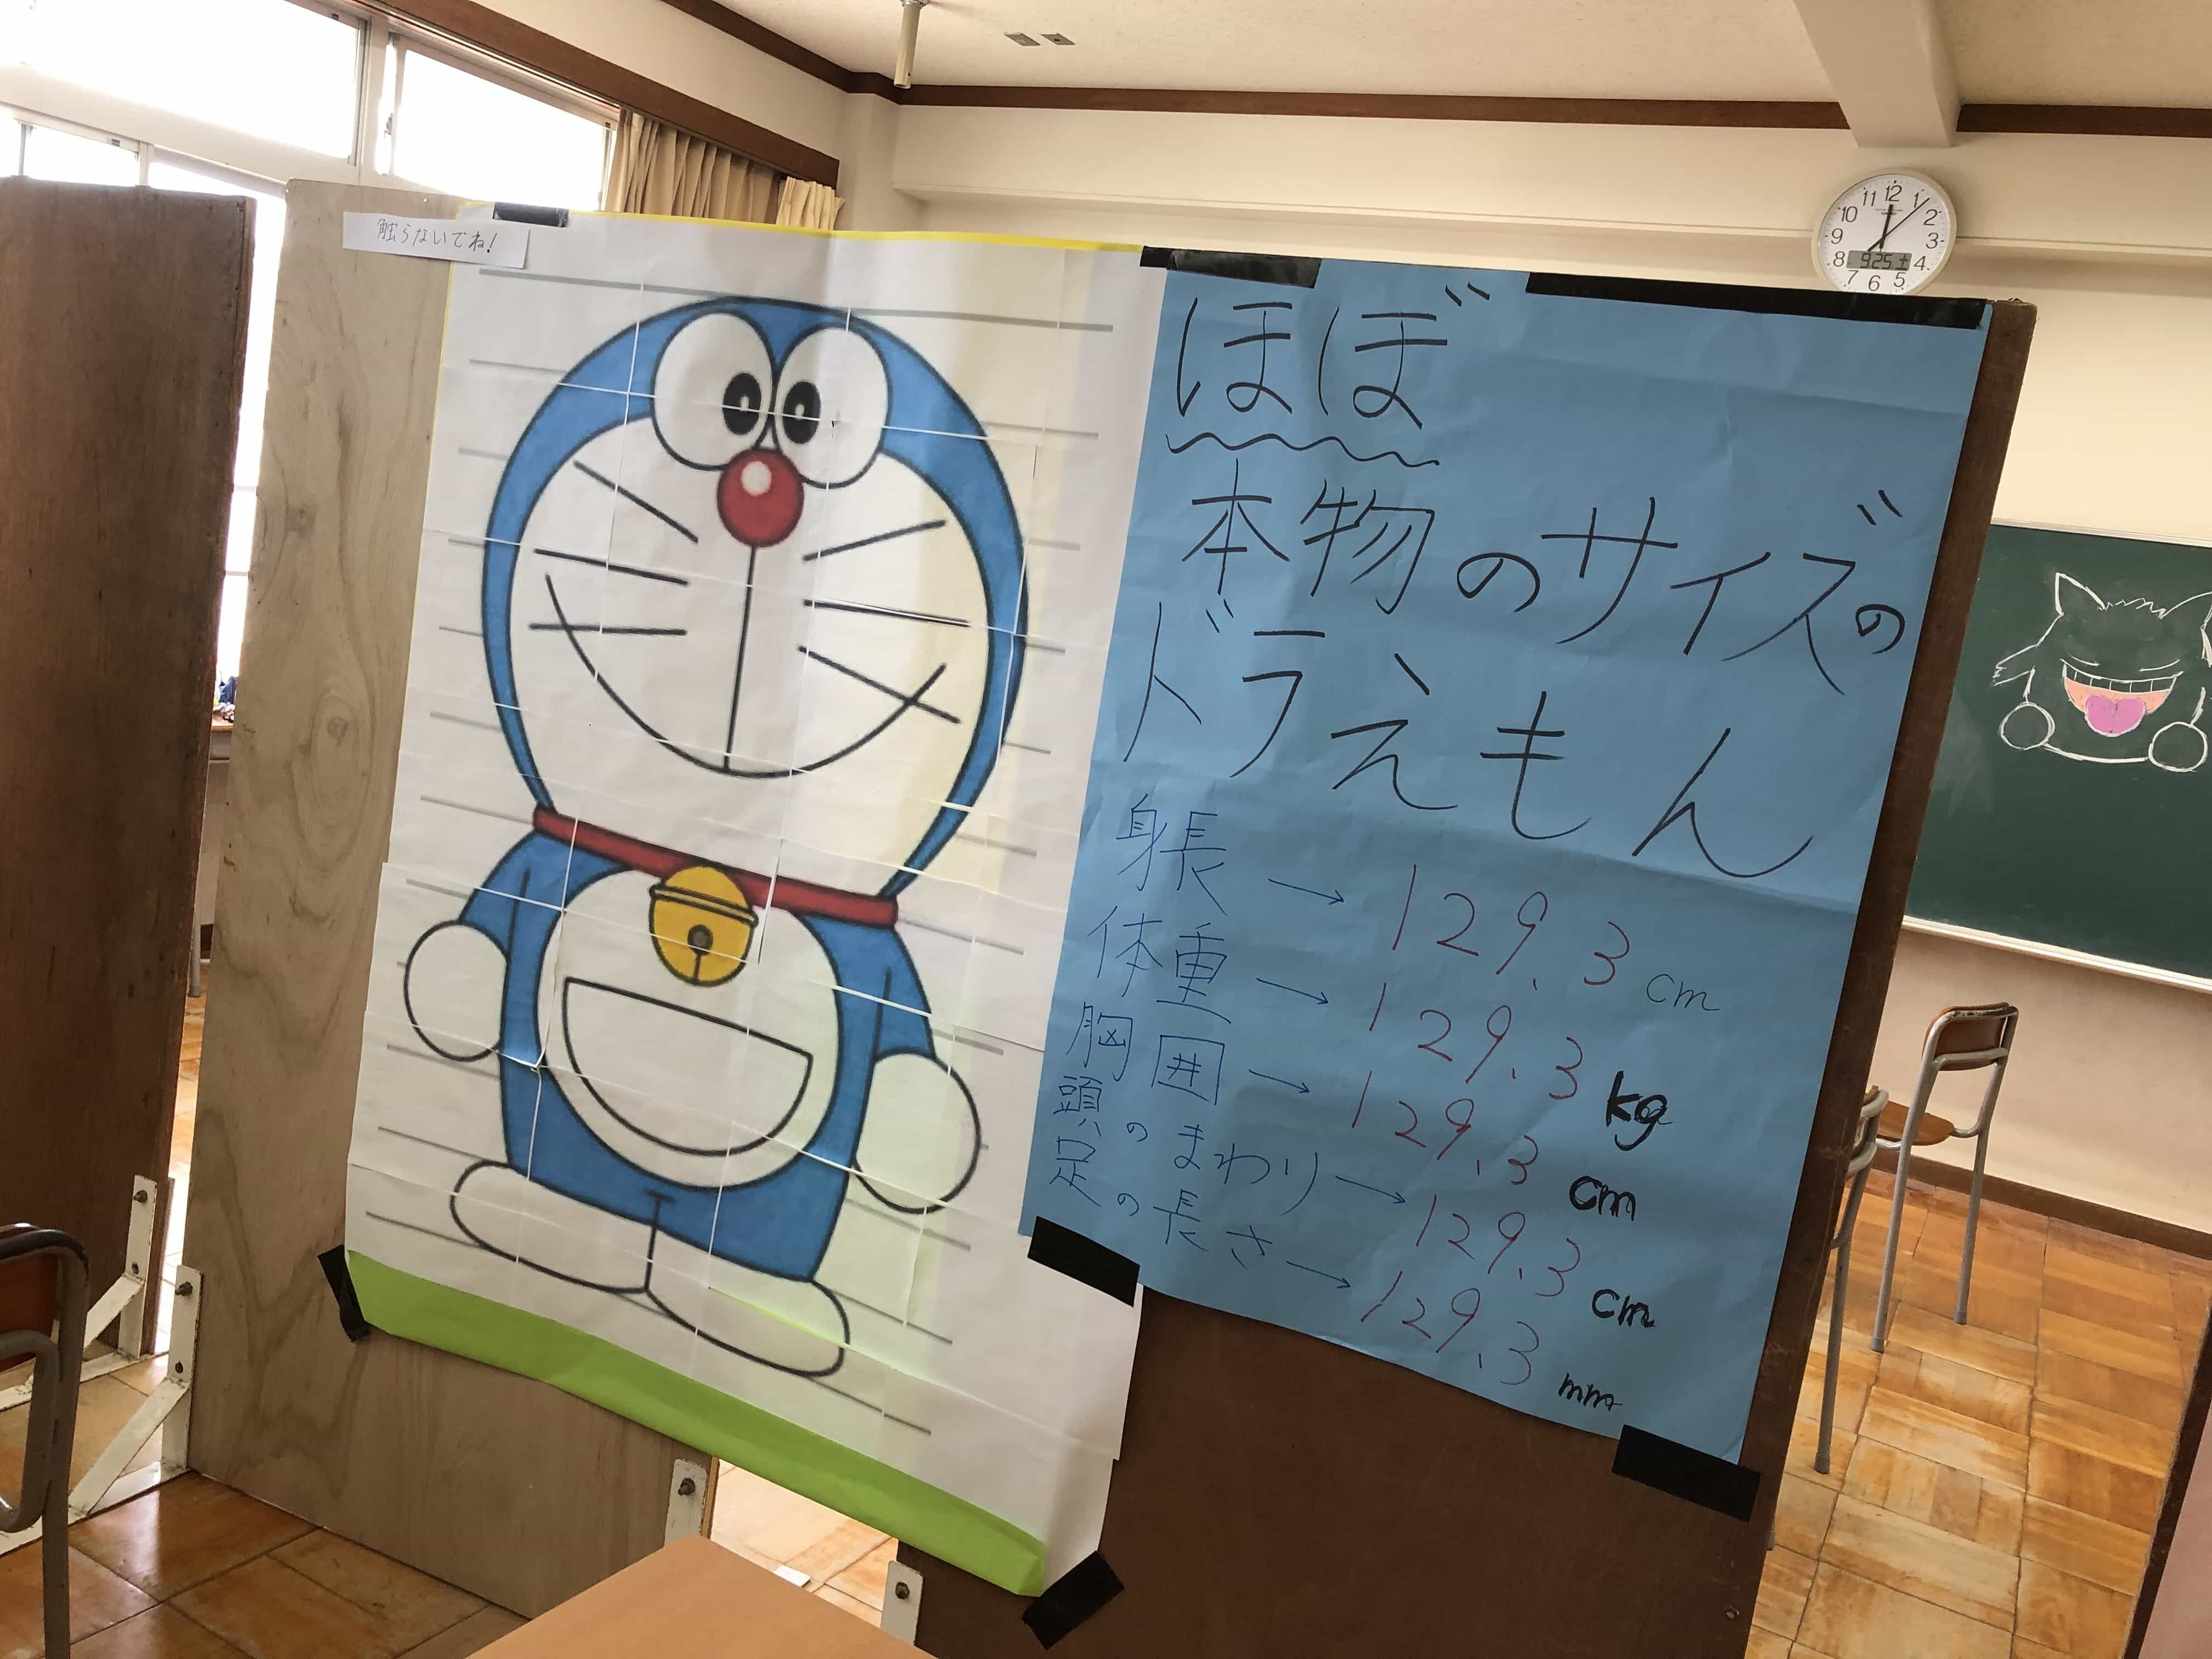 触らないでね!
ほぼ
本物のサイズの
ドラえもん
身長→129.3cm
体重→129.3kg
胸囲→129.3cm
頭のまわり→129.3cm
足の長さ→129.3mm
11 12 1
10 2
9 3
8 9.25.土 4
7 6 5